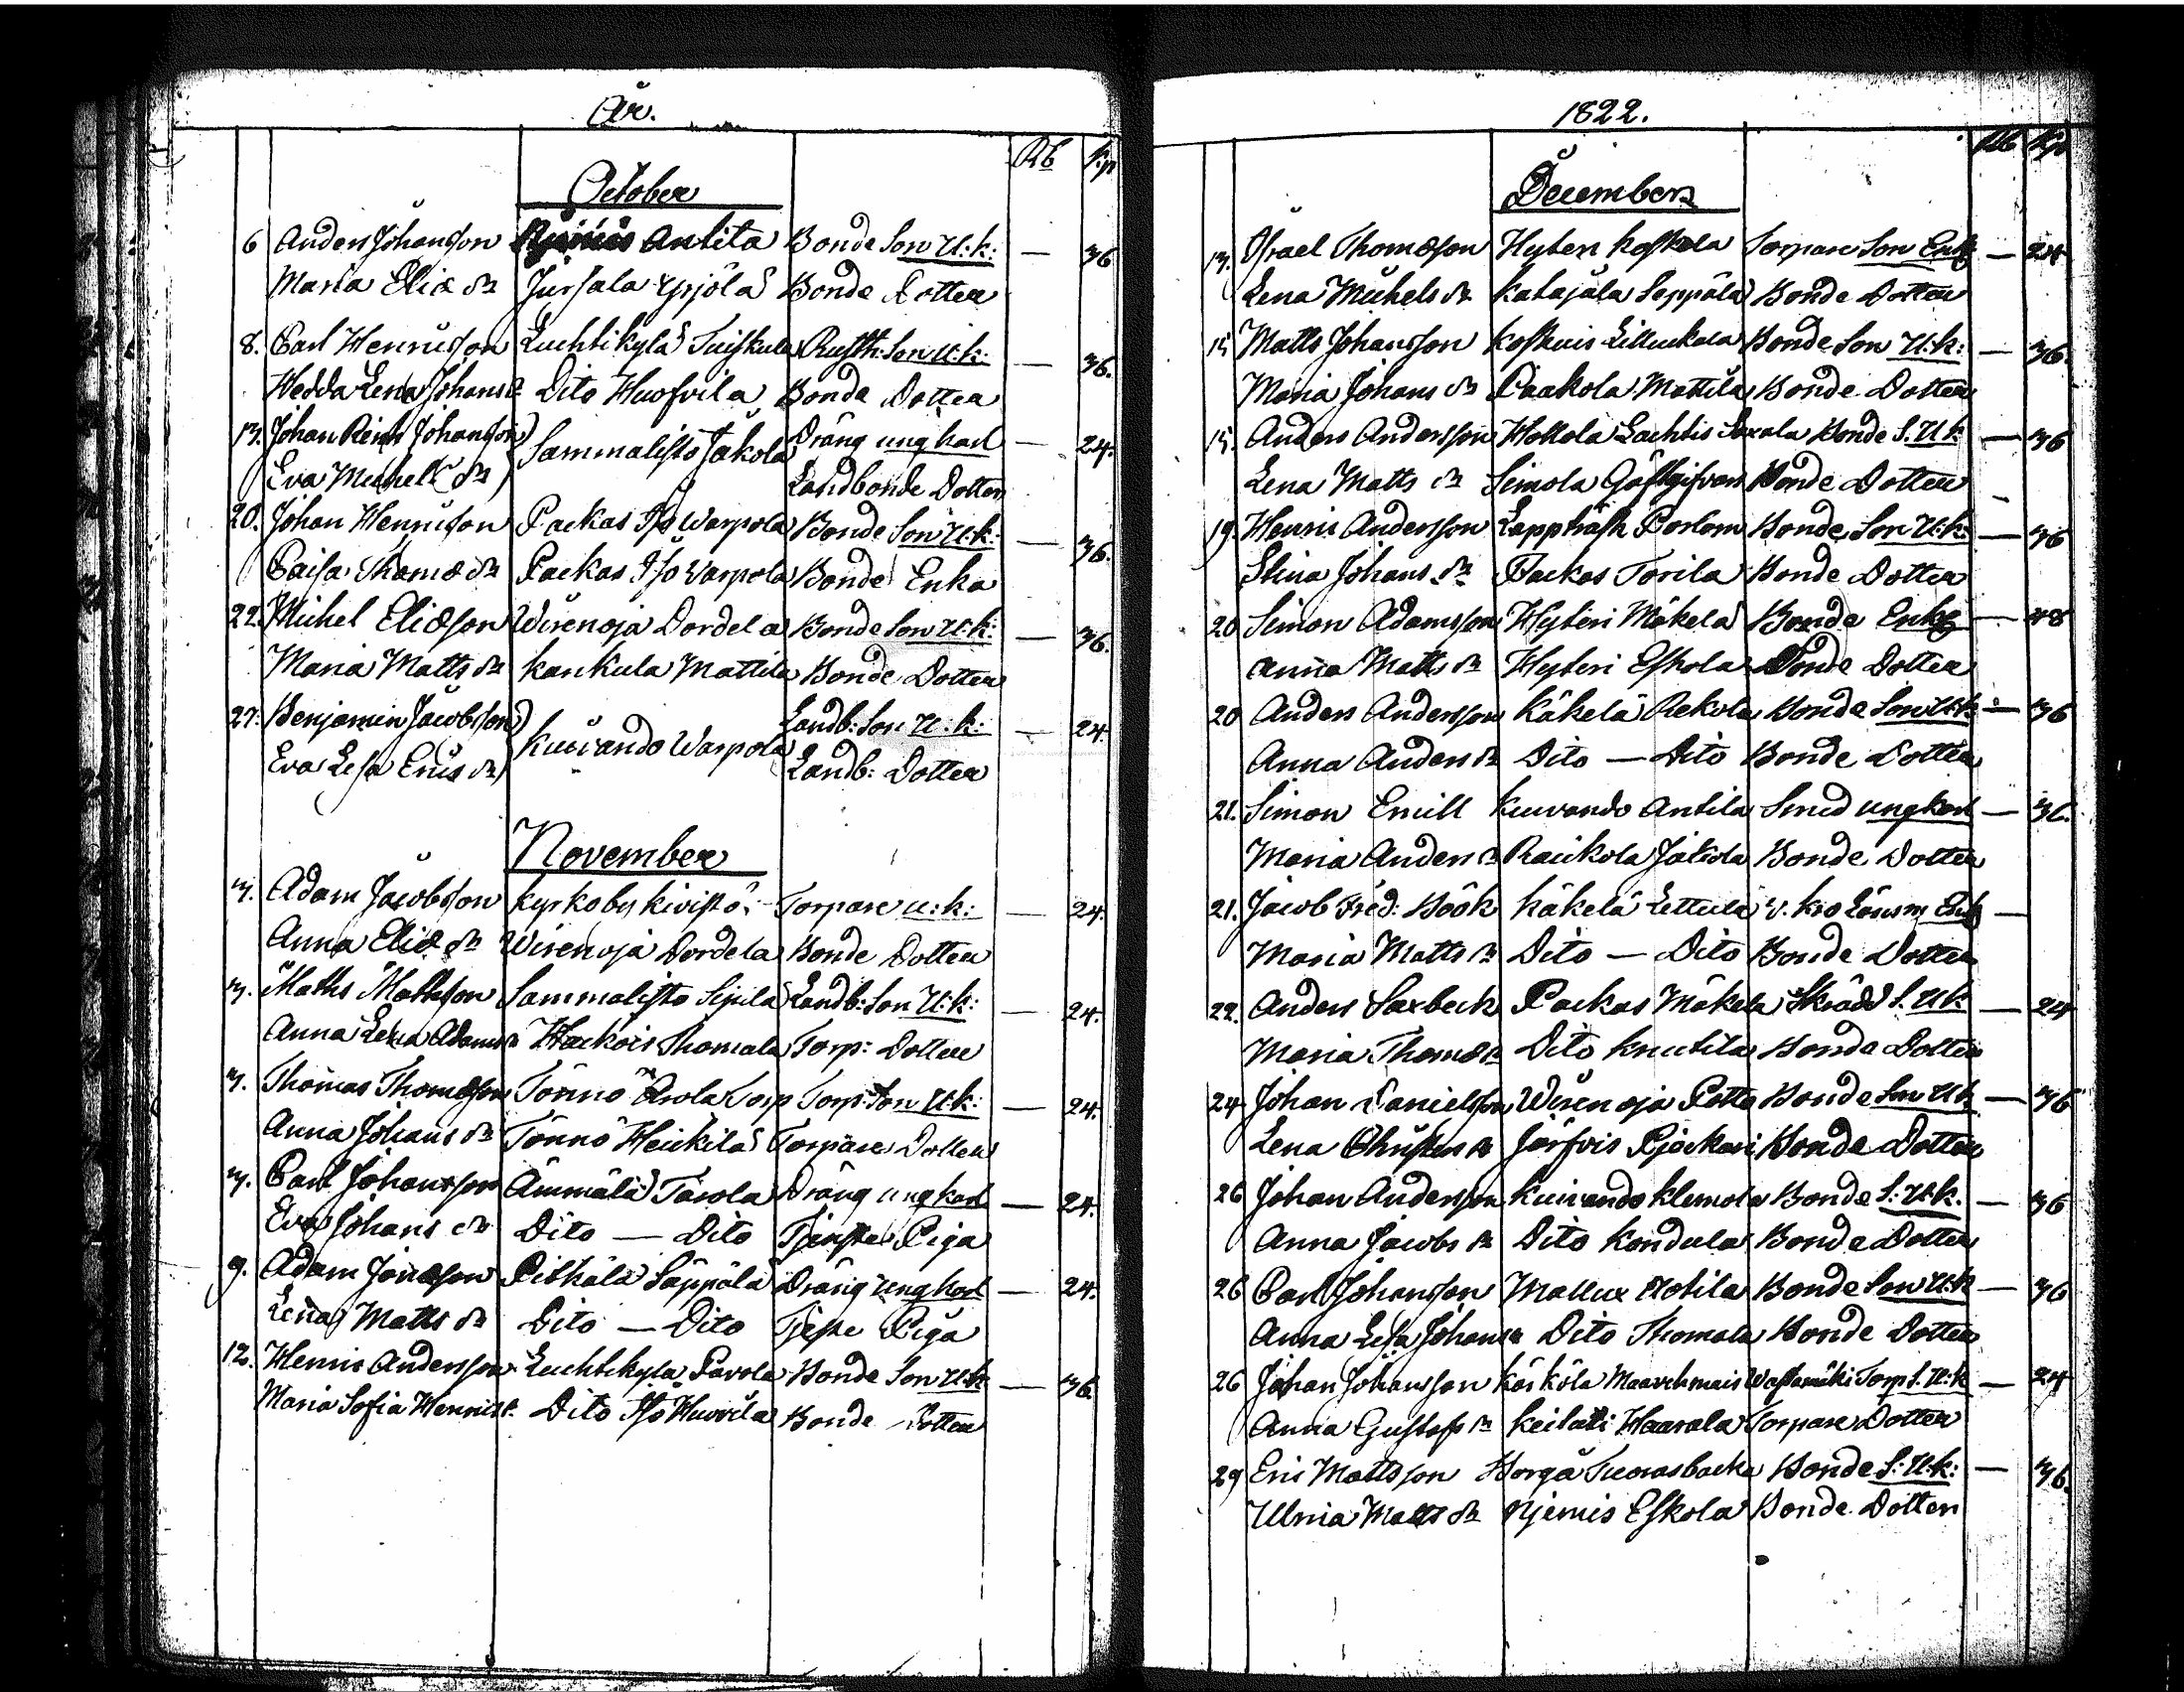 År.
Rb Kp
October
6 Anders Johansson Antila Bonde Son U:k: — 36
Maria Eliæ dr Jursala Ypjölä Bonde Dotter
8. Carl Henricsson Luchtikylä Tuiskula Rusth: Son U:k: — 36.
Hedda Lena Johans dr Dito Huofvila Bonde Dotter
13. Johan Reinh Johansson Sammalisto Jakola Dräng ung karl — 24.
Eva Michels dr Landbonde Dotter
20. Johan Henricson Packas Iso Warpola Bonde Son U:k: — 36.
Caisa Thomæ dr Packas Iso Warpola Bonde Enka
22. Michel Eliæson Wirenoja Dordela Bonde Son U:k: — 36.
Maria Matts dr Kankula Mattila Bonde Dotter
27. Benjamin Jacobsson Kuivando Warpola Landb: Son U:k: — 24.
Eva Lisa Erics dr Landb: Dotter
November
3. Adam Jacobsson Kyrkoby Kivistö Torpare U:k: — 24.
Anna Eliæ dr Wirenoja Dordela Bonde Dotter
3. Maths Mathsson Sammalisto Sipilä Landb: Son U:k: — 24.
Anna Lena Adams dr Hackois Thomala Torp: Dotter
3. Thomas Thomæson Tönnö Arola Torp Torp: Son U:k: — 24.
Anna Johans dr Tönnö Heickilä Torpare Dotter
3. Carl Johansson Ämmälä Tarola Dräng ung karl — 24.
Eva Johans dr Dito — Dito Tjenste Piga
9. Adam Jonæson Pitkälä Säppälä Dräng ung karl — 24.
Lena Matts dr Dito — Dito Tjeste Piga
12. Henric Andersson Luchtikyla Pavola Bonde Son U:k — 36.
Maria Sofia Henrics dr Dito Iso Huovila Bonde Dotter
1822.
Rb Kp
December
13. Israel Thomæson Hyteri Koskela Torpare Son Enk — 24
Lena Michels dr Katajala Seppälä Bonde Dotter
15 Matts Johansson Koskuis Lilluckala Bonde Son U:k: — 36.
Maria Johans dr Paakola Mattila Bonde Dotter
15. Anders Andersson Hollola Lachtis Saxala Bonde S. U:k: — 36
Lena Matts dr Simola Gästgifvars Bonde Dotter
19. Henric Andersson Lappträsk Porlom Bonde Son U:k: — 36
Stina Johans dr Packas Torila Bonde Dotter
20 Simon Adamsson Hyteri Mäkelä Bonde Enkl — 48
Anna Matts dr Hyteri Eskola Bonde Dotter
20 Anders Andersson Käkelä Rekola Bonde Son U:k: — 36
Anna Anders dr Dito — Dito Bonde Dotter
21. Simon Emill Kuivando Antila Smed ungkarl — 36.
Maria Anders dr Raickola Jakola Bonde Dotter
21. Jacob Fred: Höök Käkelä Lettula —
Maria Matts dr Dito — Dito Bonde Dotter
22. Anders Saxbeck Packas Mäkela Skrädd S. U:k — 24
Maria Thomæ dr Dito Knutila Bonde Dotter
24 Johan Danielsson Wirenoja Potto Bonde Son U:k — 36
Lena Christers dr Järfvis Pjackari Bonde Dotter
26 Johan Andersson Kuivando Klemola Bonde S: U:k: — 36
Anna Jacobs dr Dito Kondula Bonde Dotter
26 Carl Johansson Mallux Notila Bonde Son U:k — 36
Anna Lisa Johans dr Dito Thomala Bonde Dotter
26 Johan Johansson Kärkölä Maavehmais Wassamäki Torp S. U:k — 24
Anna Gustafs dr Keituti Haarala Torpare Dotter
29 Eric Mattsson Borgå Tuorasbacka Bonde S: U:k: — 36.
Ulrica Matts dr Njemis Eskola Bonde Dotter